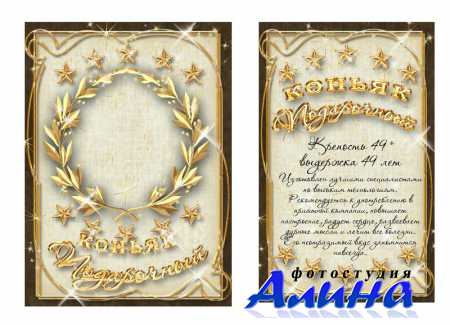 КОНЬЯК
Подарочный
КОНЬЯК
Подарочный
Крепость 49°
выдержка 49 лет
Изготовлен лучшими специалистами
по высоким технологиям.
Рекомендуется к употреблению в
приятной компании, повышает
настроение, радует сердце, развеивает
дурные мысли и лечит все болезни.
Его неотразимый вкус запомнится
навсегда.
фотостудия
Алина